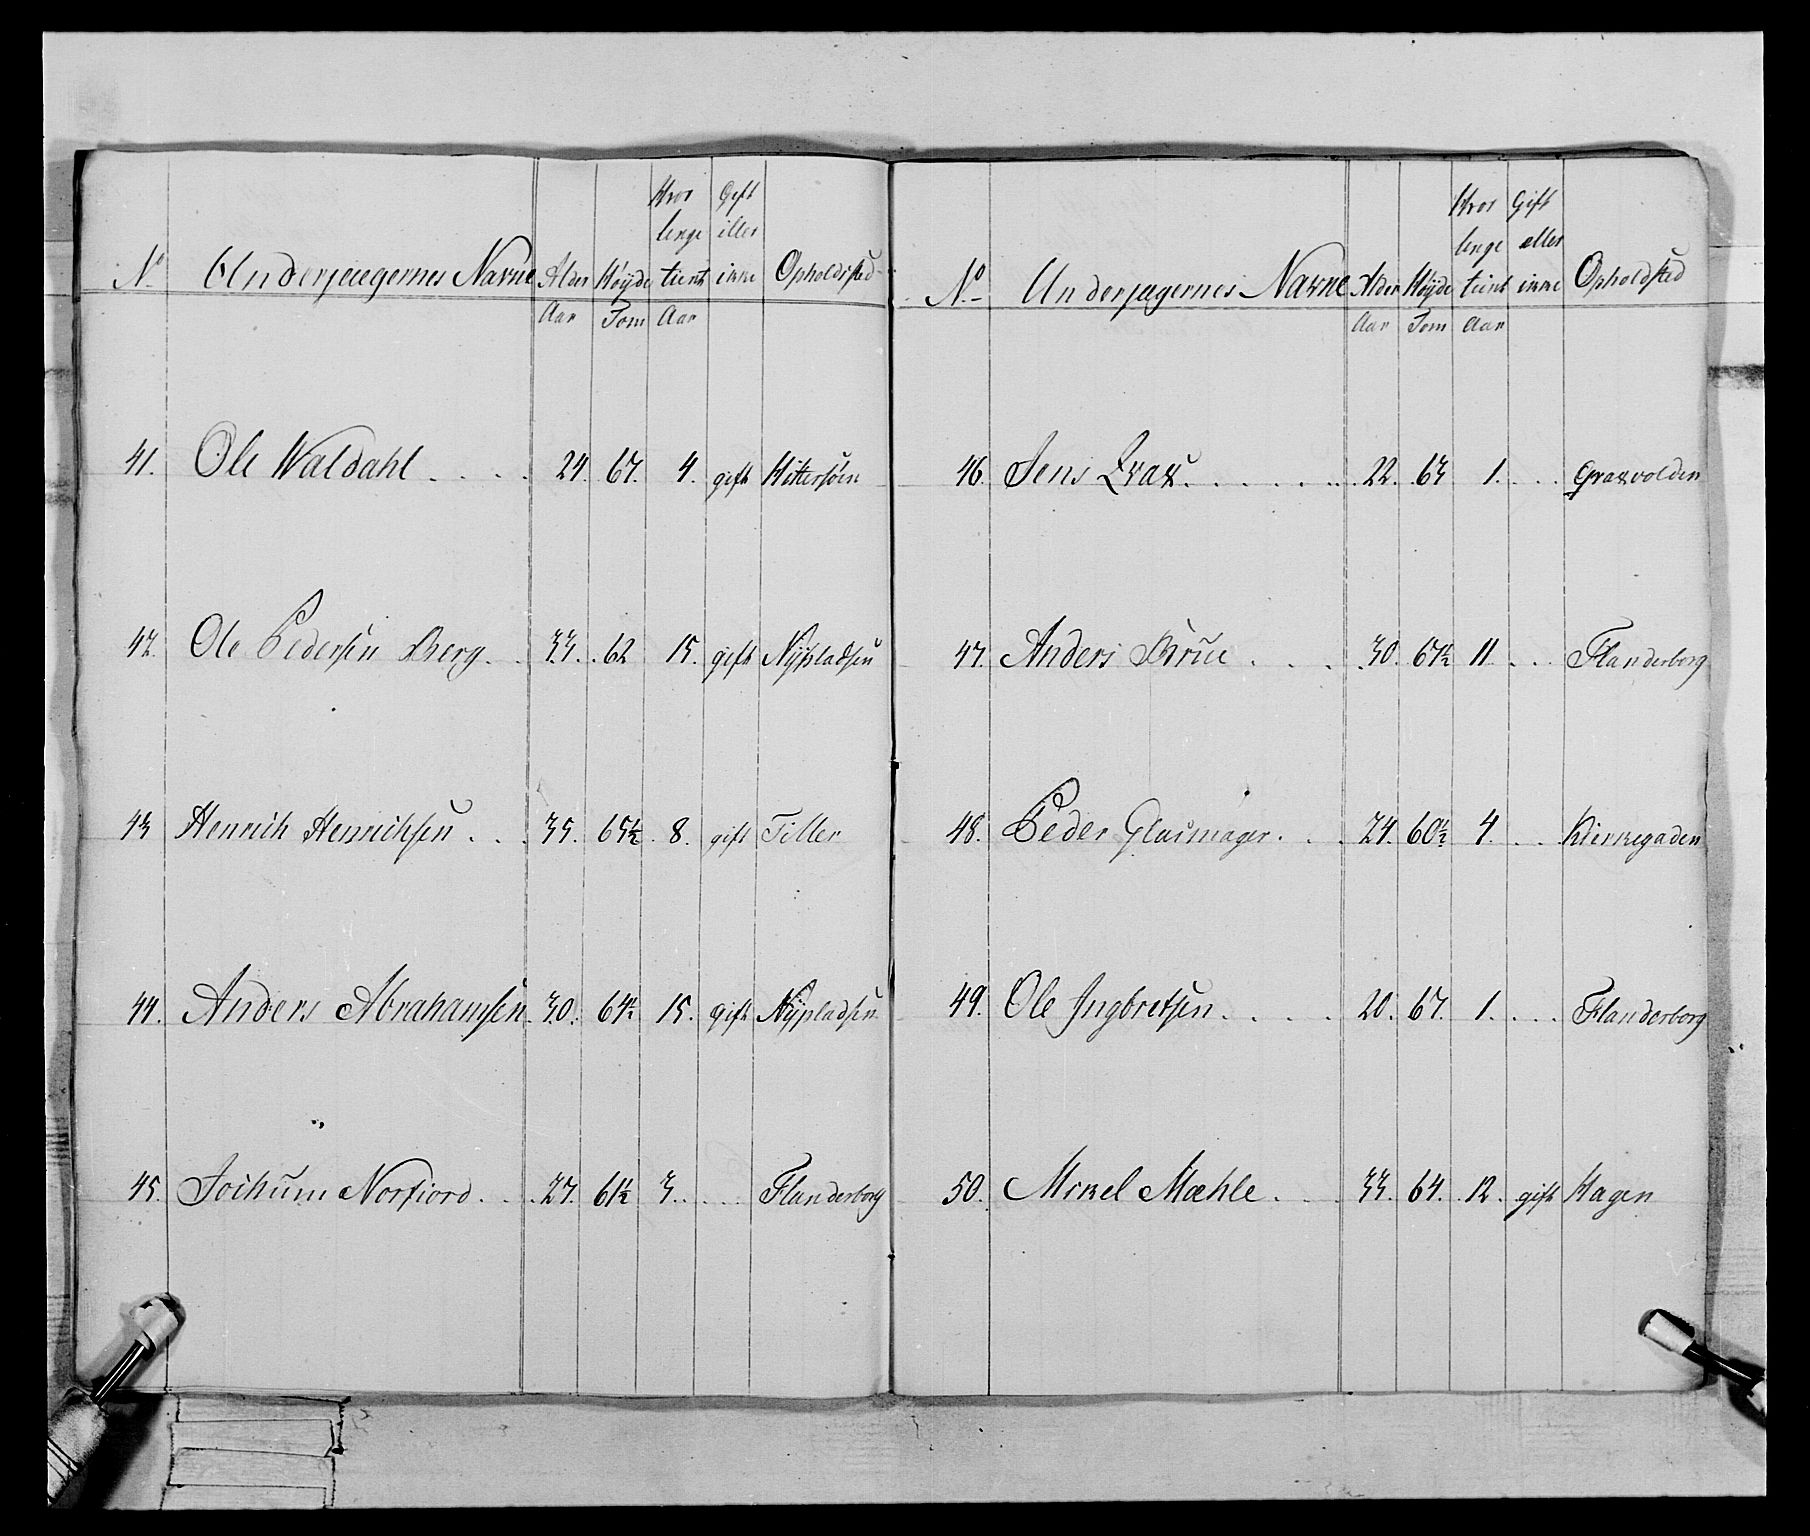 No Underjægernes Navne Alder Høyde Hvor lenge tient Gift eller ikke Opholdsted
Aar Tom Aar
41. Ole Waldahl . . . . 24. 67. 4. gift Hittersöen
42. Ole Pedersen Berg. . 33. 62 15. gift Nÿpladsen
43 Henrich Henrichsen . . . 35. 65½. 8. gift Tiller
44. Anders Abrahamsen 30. 64½ 15. gift Nÿpladsen
45. Jochum Norfiord . . . 27. 61½ 3. . . Flanderborg
No Underjægernes Navne Alder Høyde Hvor lenge tient Gift eller ikke Opholdsted
Aar Tom Aar
46. Jens . . . . . . 22. 63 1. . . Graxvolden
47. Anders Brue . . . . 30. 61½ 11. . . Flanderborg
48. Peder Glasmager. . . 24. 60½ 4. . . Kierkegaden
49. Ole Ingbretsen. . . . 20. 67. 1. . . . Flanderborg
50. Mikel Mæhle . . . 33. 64. 12. gift Hagen